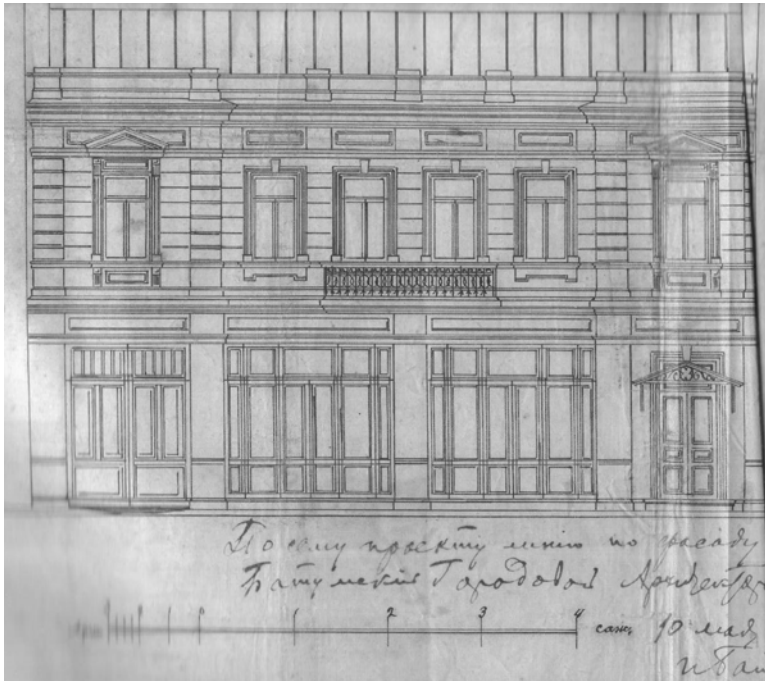 По сему проекту линію по фасаду
Батумскій Городовой Архитектор
1 2 3 4 саж.
10 мая